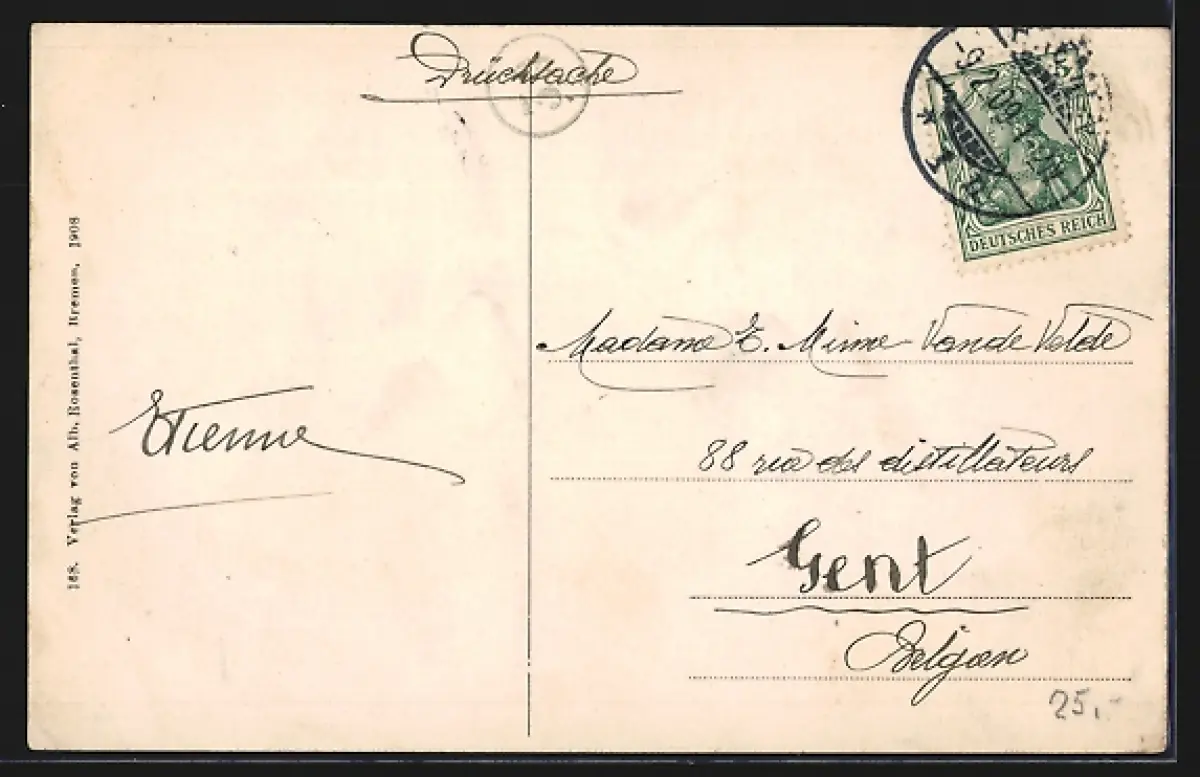 Drücksache
DEUTSCHES REICH
168. Verlag von Alb. Rosenthal, Bremen, 1908
Etienne
Madame E. Mimo Van de Velde
88 rue des distillateurs
Gent
Belgien
25,-